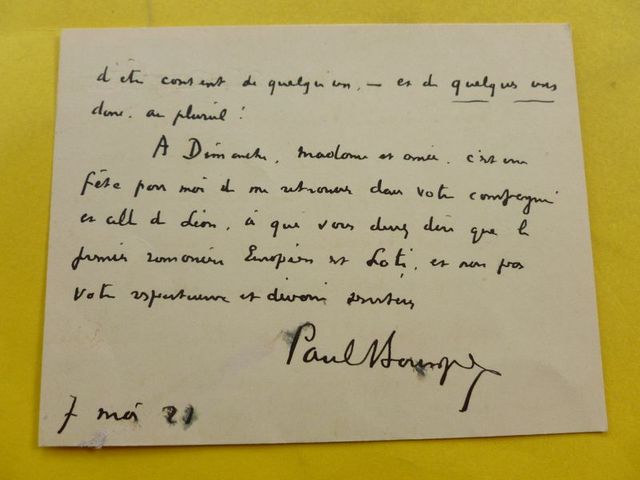 d'être content de quelqu'un, — et de quelques uns
donc, au pluriel !
A Dimanche, madame et amie, c'est une
fête pour moi de me retrouver dans votre compagnie
et celle de Léon, à qui vous direz que le
premier romancier Européen est Loti, et non pas
votre respectueux et dévoué serviteur
Paul Bourget
7 mai 21